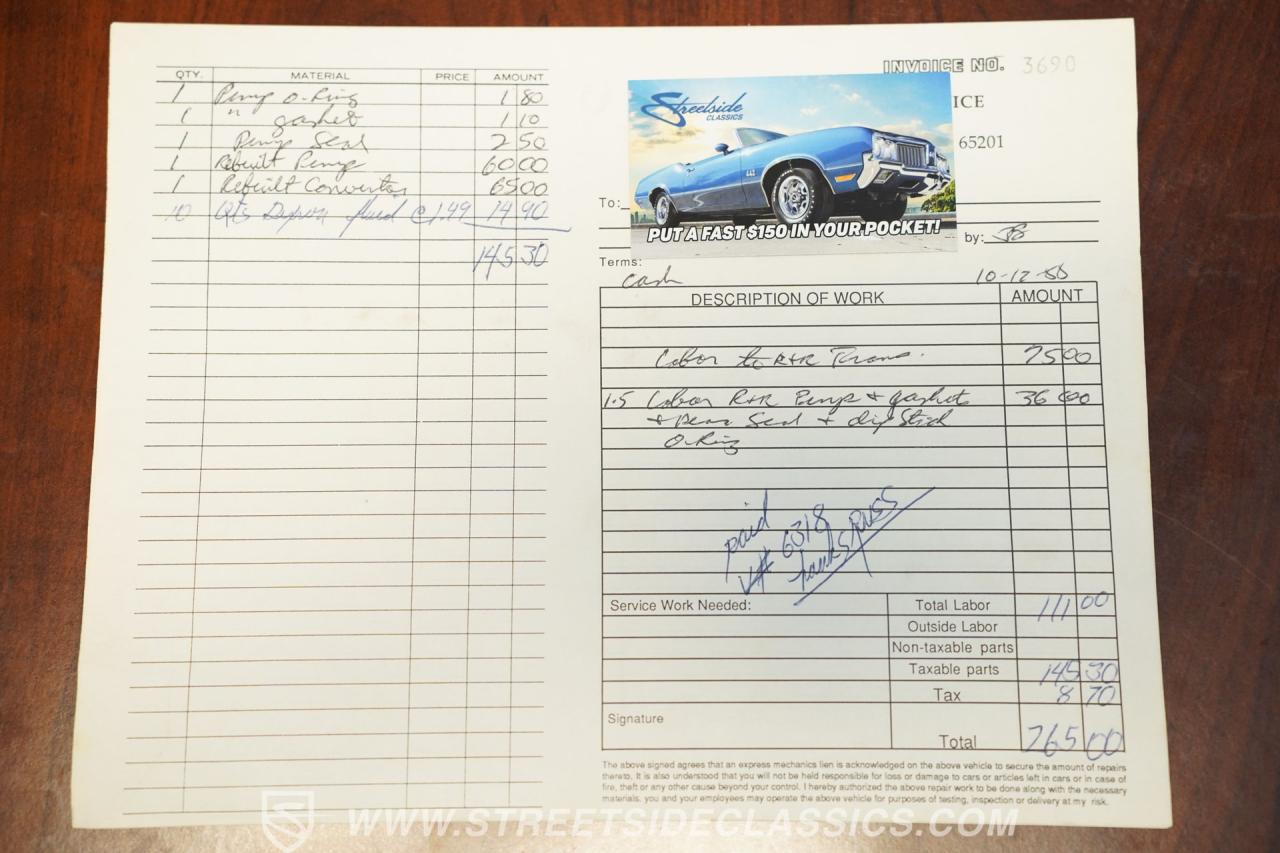 QTY. MATERIAL PRICE AMOUNT
1 Pump O-Ring 1 80
1 " gasket 1 10
1 Pump Seal 2 50
1 Rebuilt Pump 60 00
1 Rebuilt Convertor 65 00
10 Qts Dexron fluid @ 1.49 14 90
145 30
INVOICE NO. 3690
ICE
65201
Streetside
CLASSICS
442
PUT A FAST $150 IN YOUR POCKET!
To:
by:
Terms:
Cash 10-12-
DESCRIPTION OF WORK AMOUNT
Labor to R+R Trans. 75 00
1.5 Labor R+R Pump + gaskets 36 00
+ Rear Seal + dip Stick
O-Ring
paid
V# 6318
Service Work Needed:
Total Labor 111 00
Outside Labor
Non-taxable parts
Taxable parts 145 30
Tax 8 70
Signature
Total 265 00
The above signed agrees that an express mechanics lien is acknowledged on the above vehicle to secure the amount of repairs
thereto. It is also understood that you will not be held responsible for loss or damage to cars or articles left in cars or in case of
fire, theft or any other cause beyond your control. I hereby authorized the above repair work to be done along with the necessary
materials, you and your employees may operate the above vehicle for purposes of testing, inspection or delivery at my risk.
WWW.STREETSIDECLASSICS.COM